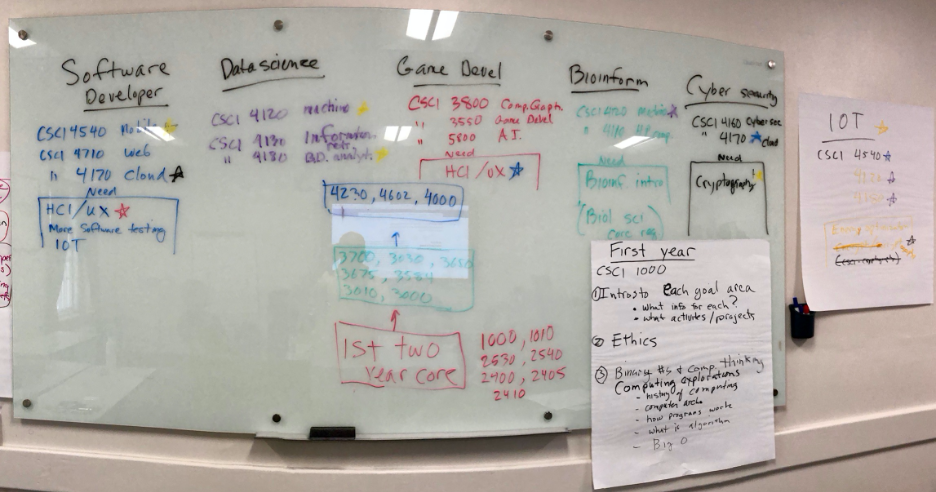 Software
Developer
CSCI 4540 Mobile
CSCI 4710 Web
" 4170 Cloud
Need
HCI/UX
More Software testing
IOT
Datascience
CSCI 4120 machine
CSCI 4130 Information
" 4180
Game Devel
CSCI 3800 Comp.Graph.
" 3550 Game Devel
" 5800 A.I.
Need
HCI/UX
4230, 4602, 4000
3700, 3030, 3650
3675, 3584
3010, 3000
1st two
year core
1000, 1010
2530, 2540
2400, 2405
2410
Bioinform
CSCI 4120 machine
" 4110
Need
Bioinf. intro
(Biol sci
core req
Cyber security
CSCI 4160 Cyber sec
" 4170 cloud
Need
Cryptography
First year
CSCI 1000
① Intros to each goal area
• what info for each?
• what activites/projects
② Ethics
③ Binary #s & Comp. thinking
Computing explorations
- history of computing
- computer archs
- how programs work
- what is algorithm
- Big O
IOT
CSCI 4540
4120